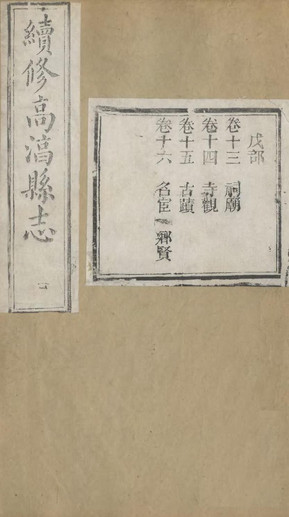 續修高淳縣志
戊部
卷十三 祠廟
卷十四 寺觀
卷十五 古蹟
卷十六 名宦 鄉賢